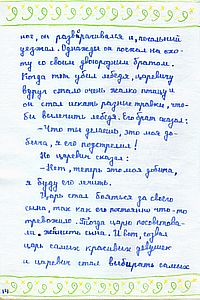 ног, он разворачивался и, печальный
уезжал. Однажды он поехал на охо-
ту со своим двоюродным братом.
Когда тот убил лебедя, царевичу
вдруг стало очень жалко птицу и
он стал искать разные травки, что-
бы вылечить лебедя. Его брат сказал:
- Что ты делаешь, это моя до-
быча, я его подстрелил!
Но царевич сказал:
- Нет, теперь это моя добыча,
я буду его лечить.
Царь стал бояться за своего
сына, так как его постоянно что-то
тревожило. Тогда царю посоветова-
ли женить сына. И вот, созвал
царь самых красивых девушек
и царевич стал выбирать самых
14